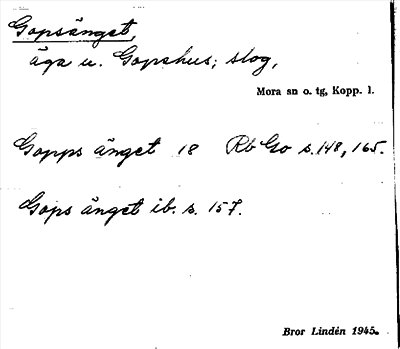 Gopsänget,
äga u. Gopshus; slog,
Mora sn o. tg, Kopp. l.
Gopps änget 18 Rb Go s. 148, 165.
Gops änget ib. s. 157.
Bror Lindén 1945.